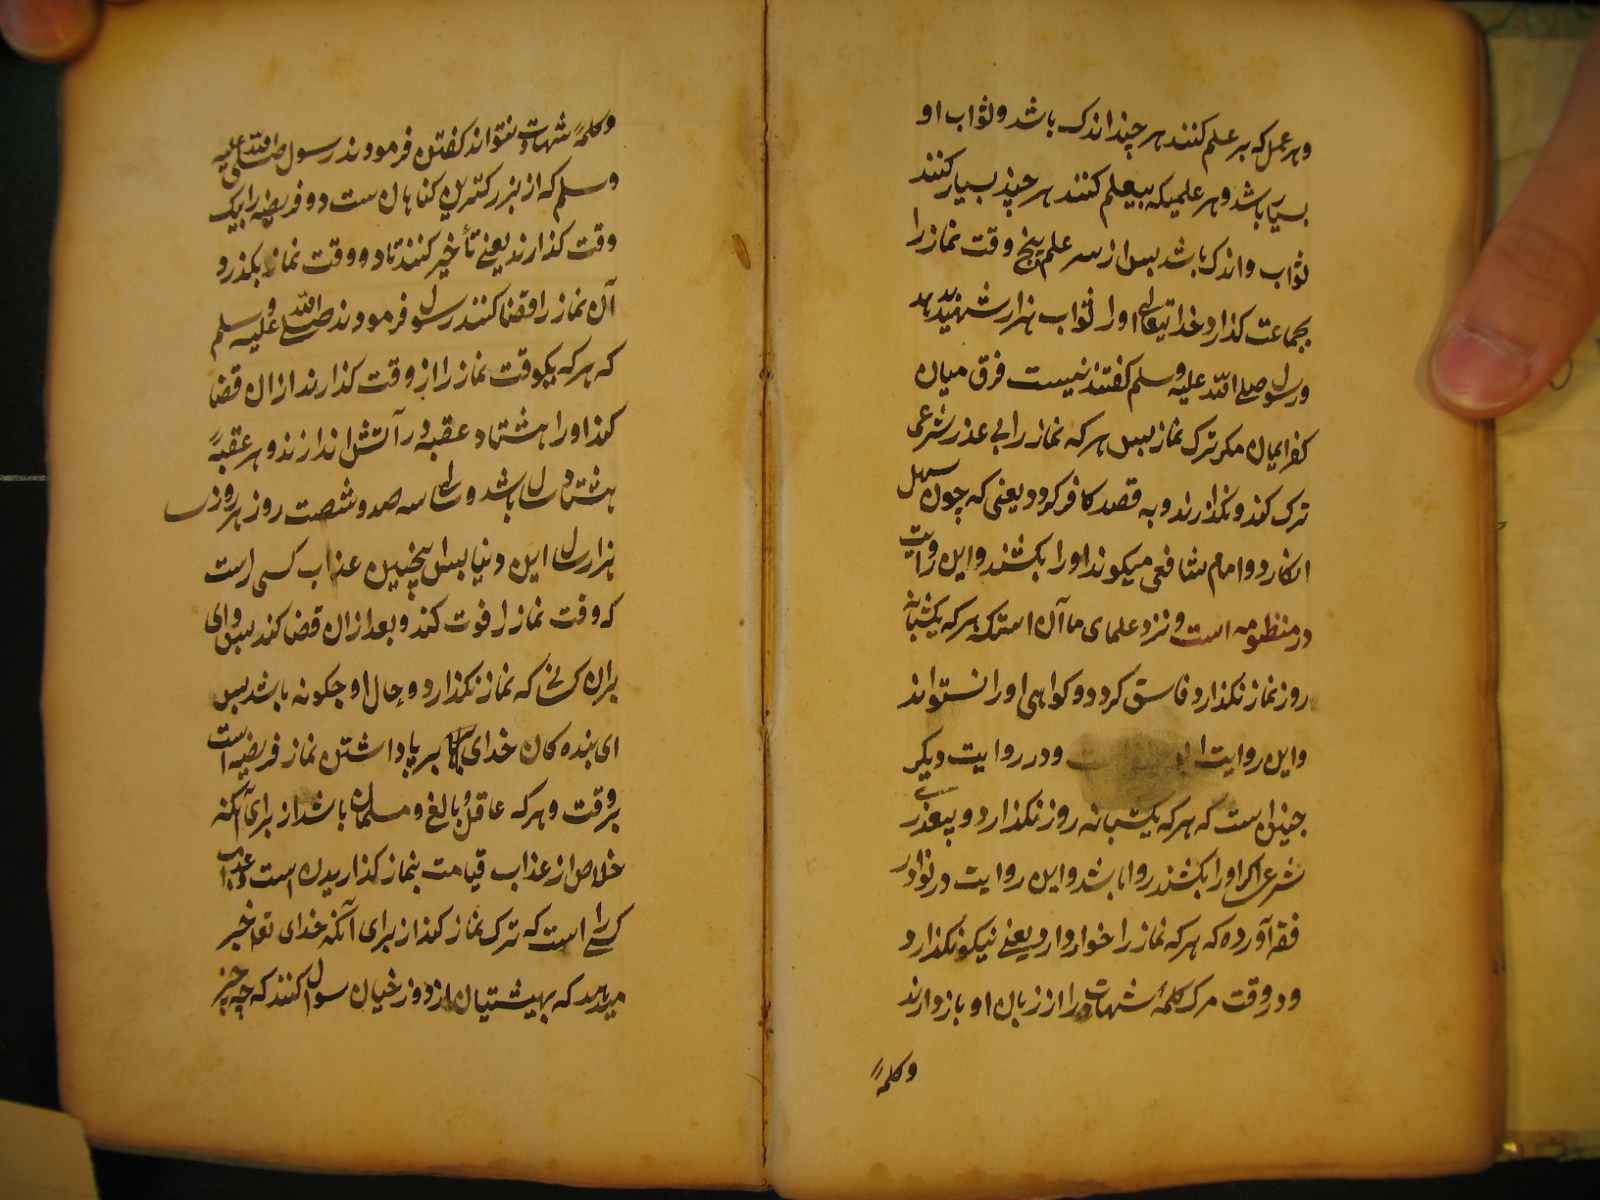 وهر عمل که بر علم کنند هر چند اندک باشد و ثواب او
بسیار باشد و هر علمیکه بیعلم کنند هر چند بسیار کنند
ثواب و اندک باشد بس از سر علم پنج وقت نماز را
بجماعت کذارد خدایتعالی او را ثواب هزار شهید بدهد
ورسول صلی الله علیه وسلم کفتند نیست فرق میان
کفر ایمان مکر ترک نماز بس هر که نماز را بی عذر شرعی
ترک کند و نکذارند و به قصد کافر کردد یعنی که چون سهل
انکارد و امام شافعی میکوند او را بکشند و این روایت
در منظومه است و نزد علمای ما آن است که هر که یکشبانه
روز نماز نکذارد فاسق کردد و کواهی او را نستواند
واین روایت ودر روایت دیکر
جنین است که هر که یکشبانه روز نکذارد و بیعذر
شرع اکر او را بکشند روا باشد و این روایت در نوادر
فقه آورده که هر که نماز را خوار دارد یعنی نیکو نکذارد
و در وقت مرک کلمهٔ شهادت را از زبان او باز دارند
و کلمهٔ
و کلمهٔ شهادت نتواند کفتن فرمودند رسول صلی الله علیه
وسلم که از بزرکترین کناهان ست دو فریضه را بیک
وقت کذارند یعنی تأخیر کنند تا دو وقت نماز بکذرد
آن نماز را قضا کنند رسول فرمودند صلی الله علیه وسلم
که هر که یکوقت نماز را از وقت کذارند از ان قضا
کند او را هشتاد عقبه در آتش اندازند و هر عقبهٔ
هشتاد سال باشد و سالی سه صد و شصت روز هر روزی
هزار سال این دنیا بس اینچنین عذاب کسی راست
که وقت نماز را فوت کند و بعد از ان قضا کند بس وای
بران کسانی که نماز نکذارد و حال او جکونه باشد بس
ای بنده کان خدای بر پا داشتن نماز فریضه است
بر وقت و هر که عاقل و بالغ و مسلمان باشد از برای آنکه
خلاص از عذاب قیامت بنماز کذاریدن است و عذاب
کسی را است که ترک نماز کند از برای آنکه خدای تعا خبر
میدهد که بهیشتیان از دوزخیان سوال کنند که چه چیز